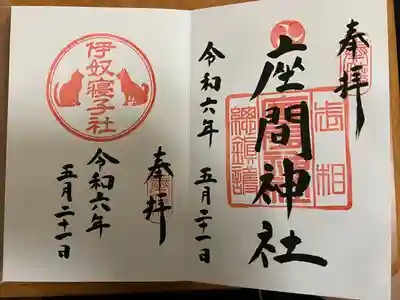 奉拝
座間神社
武相
總鎮護
令和六年 五月二十一日
伊奴寝子社
奉拝
令和六年
五月二十一日